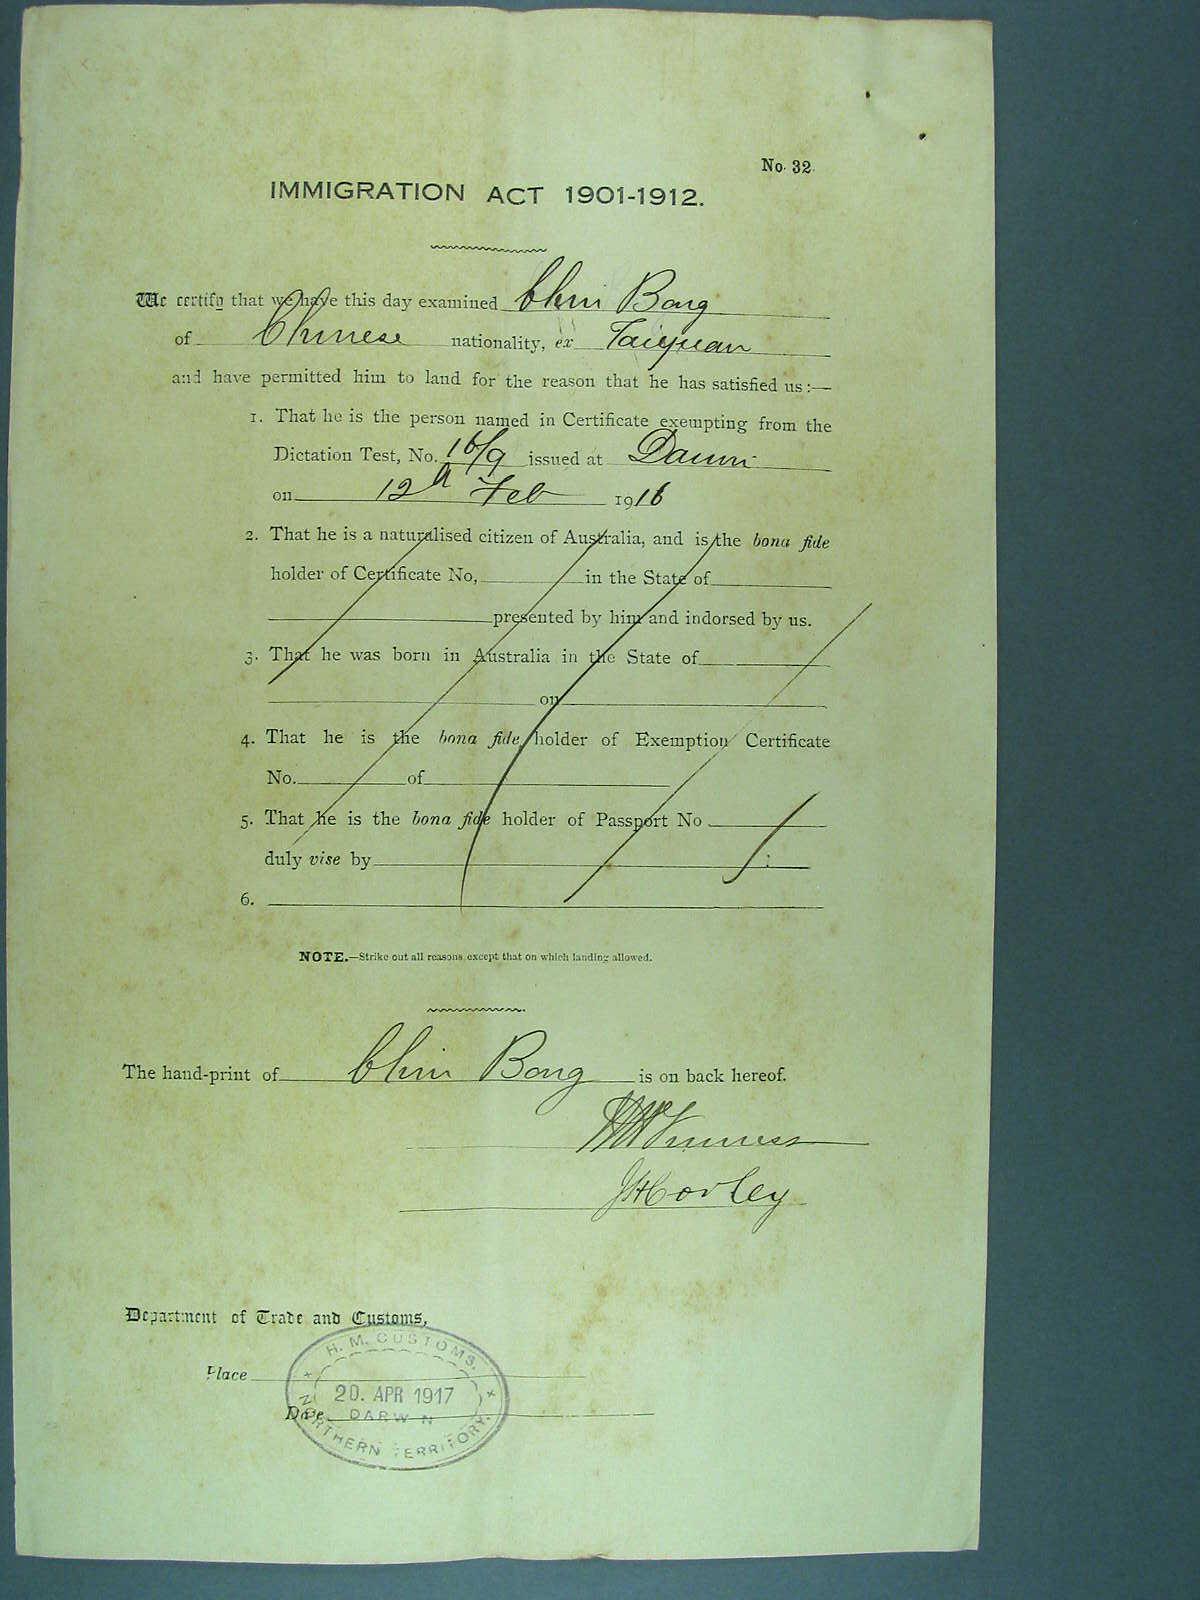 No. 32.
IMMIGRATION ACT 1901-1912.
We certify that we have this day examined Chin Bong
of Chinese nationality, ex Taiyuan
and have permitted him to land for the reason that he has satisfied us :—
1. That he is the person named in Certificate exempting from the
Dictation Test, No. 16/9 issued at Darwin
on 12th Feb 1916
2. That he is a naturalised citizen of Australia, and is the bona fide
holder of Certificate No, in the State of
presented by him and indorsed by us.
3. That he was born in Australia in the State of
on
4. That he is the bona fide holder of Exemption Certificate
No. of
5. That he is the bona fide holder of Passport No
duly vise by
6.
NOTE.—Strike out all reasons except that on which landing allowed.
The hand-print of Chin Bong is on back hereof.
JHCorley
Department of Trade and Customs,
Place
Date
H. M. CUSTOMS.
20. APR 1917
DARWIN
NORTHERN TERRITORY.